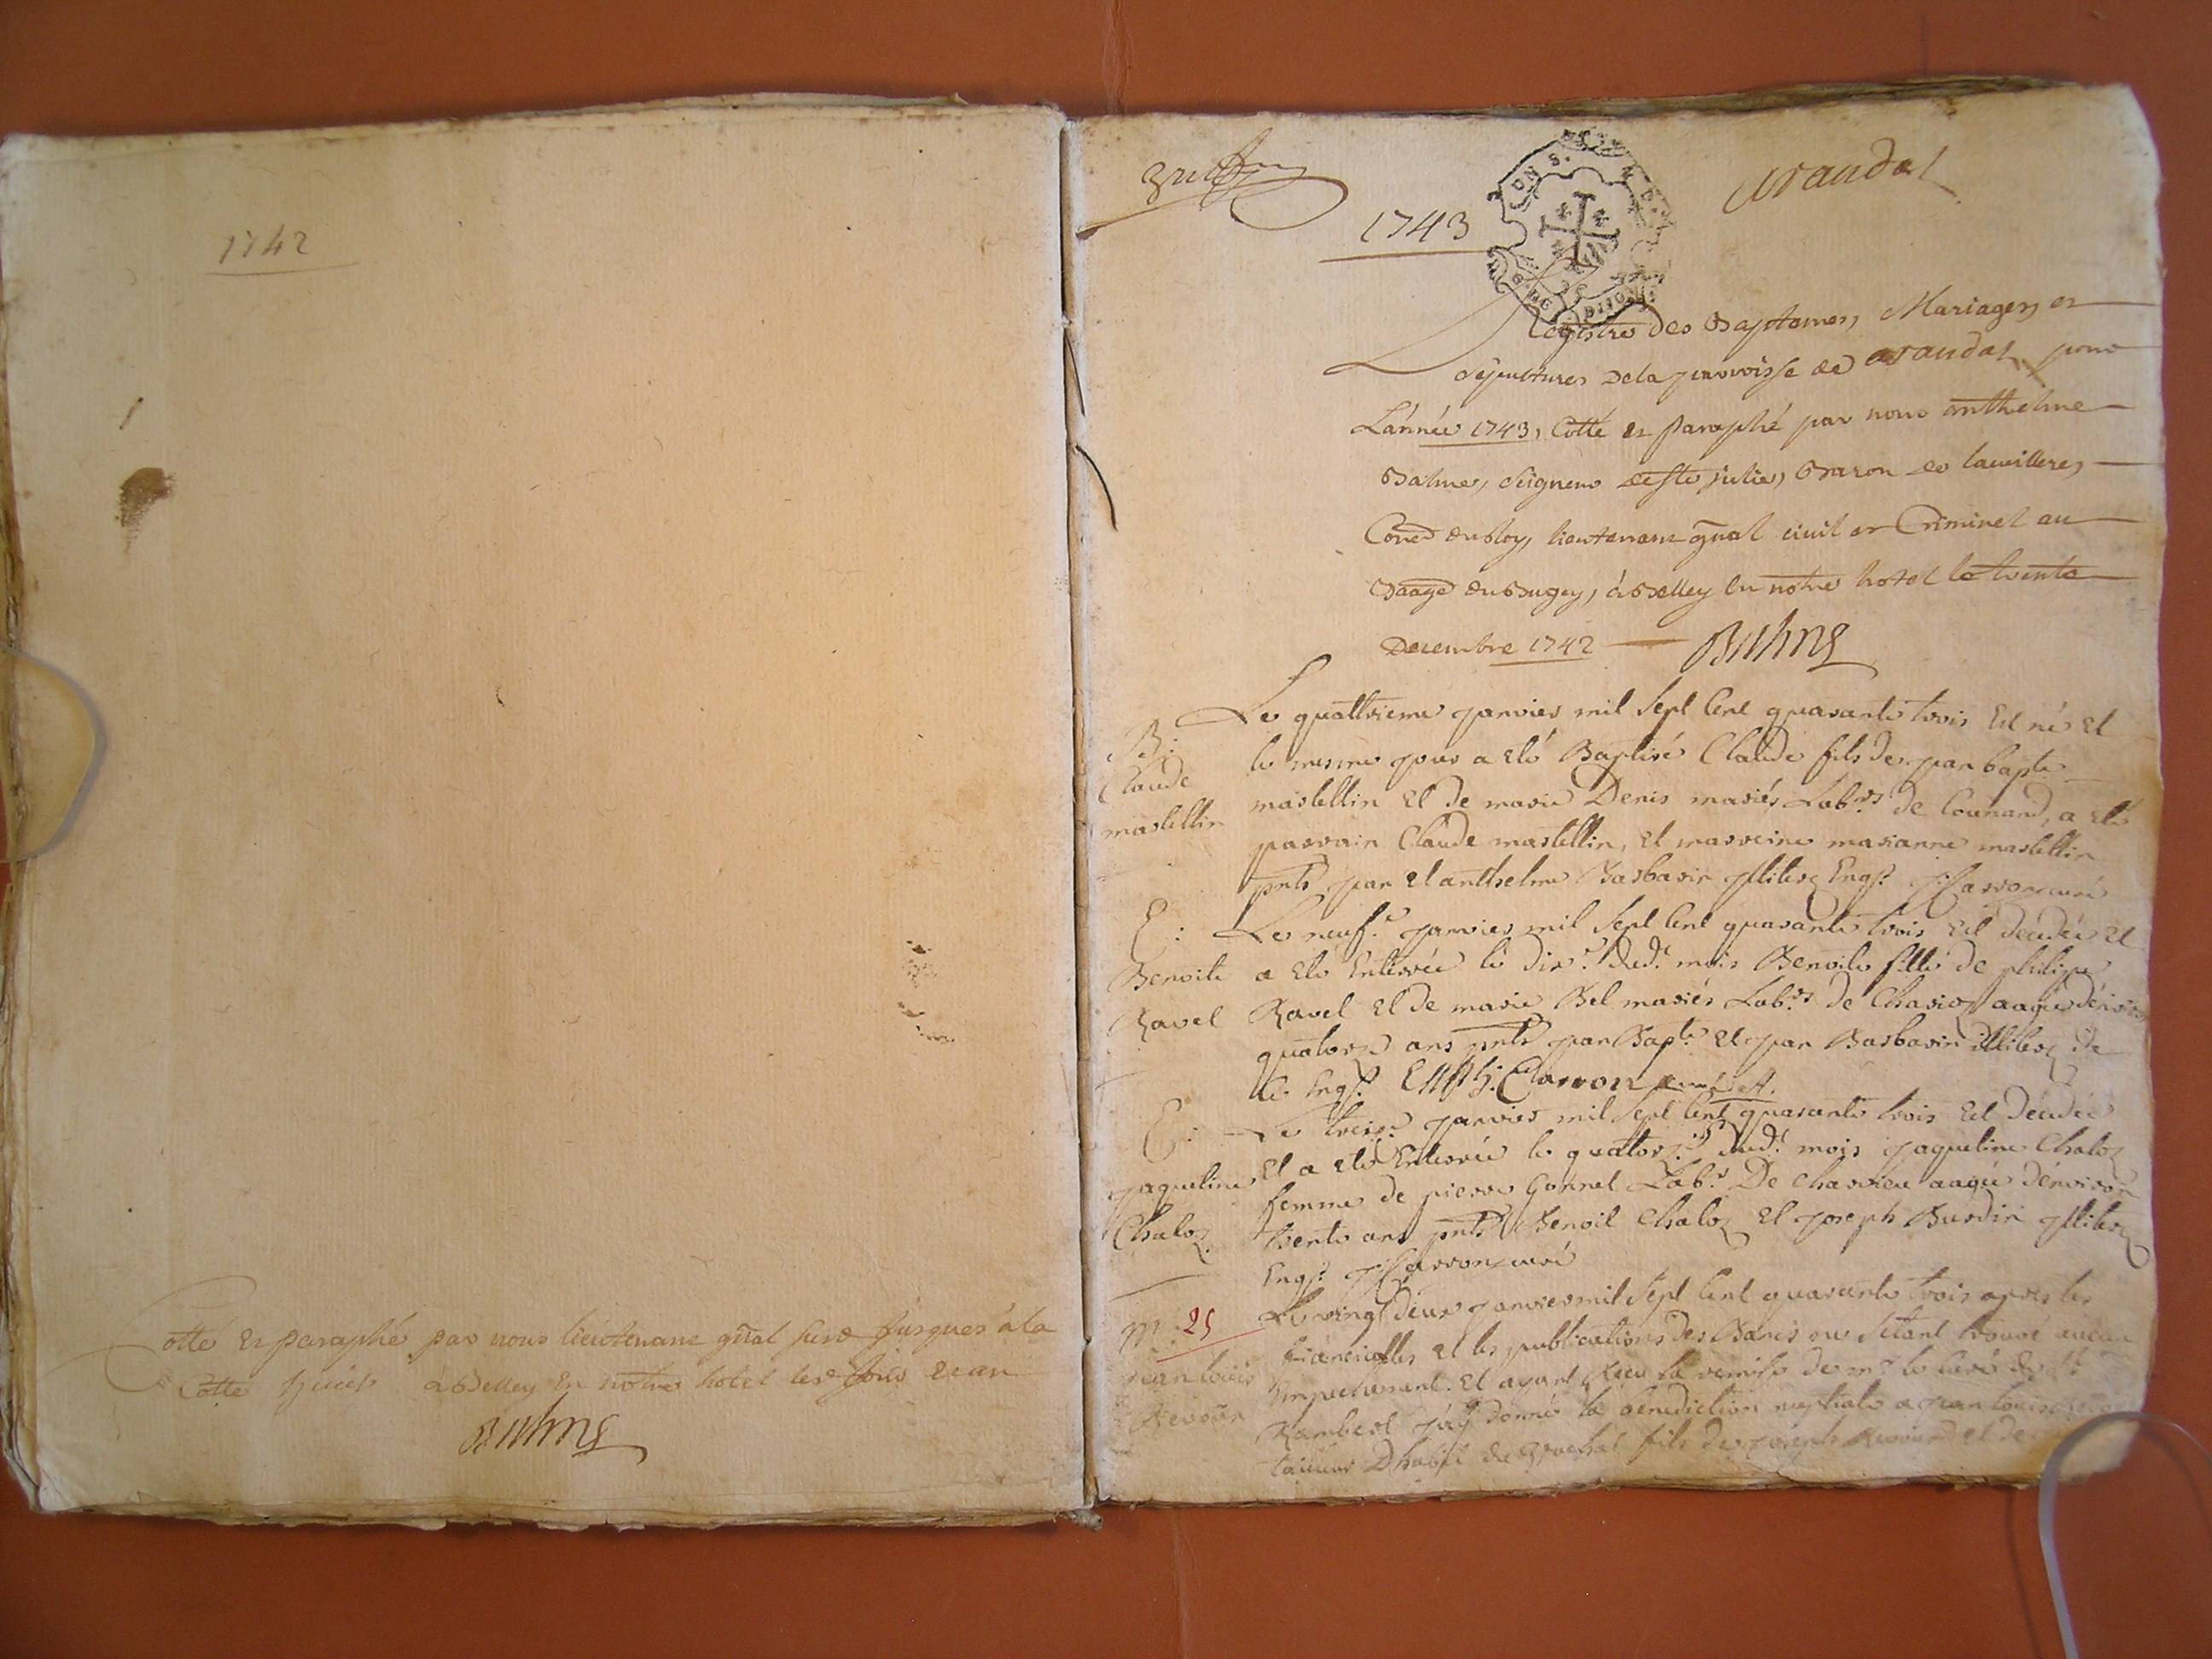 1742
Cotté et paraphé par nous lieutenant gñal susd jusques à la
Cotte huict à Belley en notre hotel lesd jour et an
Balme
1743
arandas
Registre des Baptemes, Mariages, et
sépultures de la parroisse de arandas pour
L'année 1743, Cotté et Paraphé par nous anthelme
Balme, seigneur de ste julie, Baron de
Cons du Roy, lieutenant gñal civil et Criminel au
Baage du Bugey, à Belley en notre hotel le trente
Decembre 1742 Balme
B:
Claude
martellin
Le quattrieme janvier mil sept cent quarante trois est né et
le mesme jour a eté Baptisé Claude fils de jean bapte
martellin et de marie Denis mariés Labrs de Counand, a eté
parrain Claude martellin, et marreine marianne martellin
pnts jean et anthelme Barbarin illiterez Enqs. Carron curé
E:
Benoite
Ravel
Le neufe janvier mil sept cent quarante trois est décédée et
a eté Enterrée le dixe dudt mois Benoite fille de philipe
Ravel et de marie Bel mariés Labrs de aagée d'environ
quatorze ans pnts jean Bapte et jean Barbarin illiterez de
ce Enqs. Carron curé
E:
jaqueline
Chaloz
Le treize janvier mil sept cent quarante trois est décédée
Et a eté Enterrée le quatorze dudt mois jaqueline Chaloz
femme de pierre Gonnet Labr De aagée d'environ
trente ans pnts Benoit Chaloz et joseph Burdin illiterez
Enqs. Carron curé
m: 25
jean louis
Revour
Le vingt deux janvier mil sept cent quarante trois apres les
fiancialles et les publications des Bans ne s'etant trouvé aucun
Empechement. et ayant Receu la remise de mr le curé de st
Rambert j'ay donné la bénediction nuptiale a jean louis
tailleur D'habit de fils de joseph et de